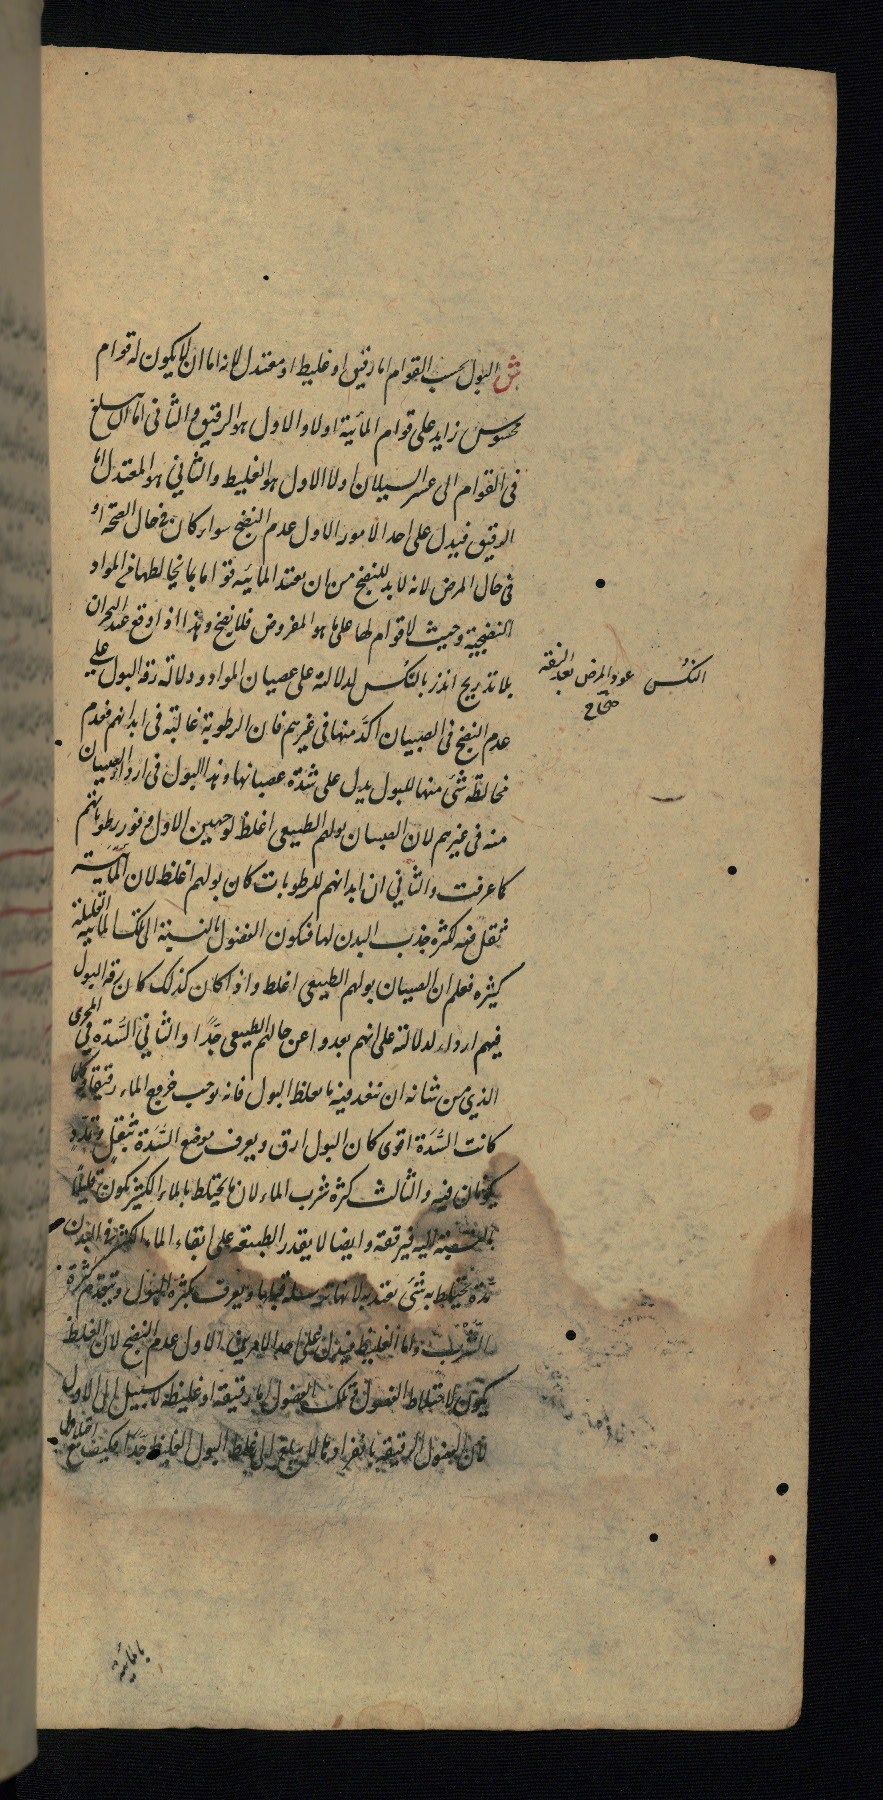 ش البول بحسب القوام اما رقيق او غليظ او معتدل لانه اما ان لا يكون له قوام
محسوس زايد على قوام المائية اولا والاول هو الرقيق والثاني اما ان يبلغ
في القوام الى عسر السيلان اولا الاول هو الغليظ والثاني هو المعتدل اما
الرقيق فيدل على احد الامور الاول عدم النضج سواء كان في حال الصحة او
في حال المرض لانه لا بد للنضج من ان يفيد المائيه قواما بمايخالطها من المواد
النضجية وحيث لا قوام لها على ما هو المفروض فلا نضج وهذا اذا وقع عند البحران
بلا تدريج انذر بالنكس لدلالته على عصيان المواد ودلالة رقة البول على
عدم النضج في الصبيان اكد منها في غيرهم فان الرطوبة غالبة في ابدانهم فعدم
مخالطة شئ منها للبول يدل على شدة عصيانها وهذا البول في الصبيان اردا
منه في غيرهم لان الصبيان بولهم الطبيعي اغلظ لوجهين الاول وفور رطوباتهم
كما عرفت والثاني ان ابدانهم للرطوبات كان بولهم اغلظ لان المائية
تقل فيه لكثرة جذب البدن لها فتكون الفضول بالنسبة الى تلك المائية القليلة
كثيره فعلم ان الصبيان بولهم الطبيعي اغلظ واذا كان كذلك كان رقة البول
فيهم اردا لدلالته على انهم بعدوا عن حالهم الطبيعي جدًا والثاني السّدة في المجرى
الذي من شانه ان ينفد فيه ما يغلظ البول فانه يوجب خروج الماء رقيقا وكلما
كانت السّدة اقوى كان البول ارق ويعرف موضع السّدة بثقلٍ وتمدّدٍ
يكونان فيه والثالث كثرة شرب الماء لان ما يختلط بالماء الكثير يكون قليلًا
بالنسبة اليه فيرققه وايضا لا يقدر الطبيعة على ابقاء الماء الكثير في البدن
مدة يختلط به شئ يعتد به لانها ترسله قبلها ويعرف بكثرة البول وتقدم كثرة
الشرب واما الغليظ فيدل على احد الامرين الاول عدم النضج لان الغلظ
يكون لاختلاط الفضول وتلك الفضول اما رقيقة او غليظة لا سبيل الى الاول
لان الفضول الرقيقة بانفرادها لا يبلغ الى غلظ البول الغليظ جدا فكيف مع اختلاطها
بالمائية
النكس عود المرض بعد النقه
صحاح